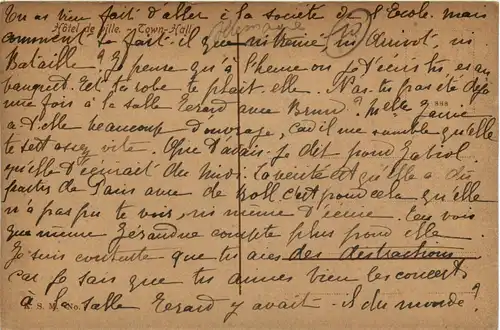 Tu as bien fait d'aller à la société de l'Ecole. mais
Hôtel de Ville. Town-Hall
comment se fait-il que ni ni Quivot, ni
Bataille ? Je pense qu'à l'heure où je t'écris tu es au
banquet. Et ta robe te plait-elle. N'as-tu pas été déjà
une fois à la salle Erard avec ? Melle
a-t-elle beaucoup d'ouvrage, car il me semble qu'elle
te sett assez vite. Que t'avais-je dit pour
qu'elle t'écrirait du Midi. La vérité est qu'elle a dû
partir de Paris avec de c'est pour cela qu'elle
n'a pas pu te voir, ni même t'écrire. Tu vois
que même compte plus pour elle.
Je suis contente que tu aies des distractions
car je sais que tu aimes bien les concerts
à la salle Erard y avait-il du monde ?